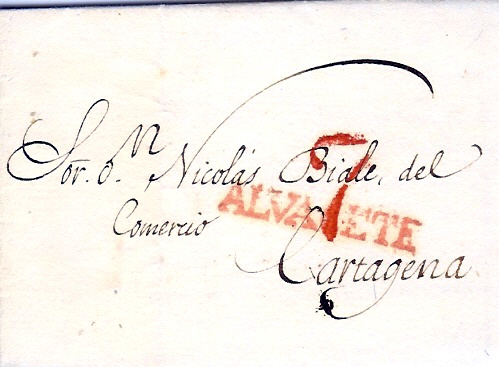 Sor. Dn. Nicolás Biale, del
Comercio
7
ALVACETE
Cartagena